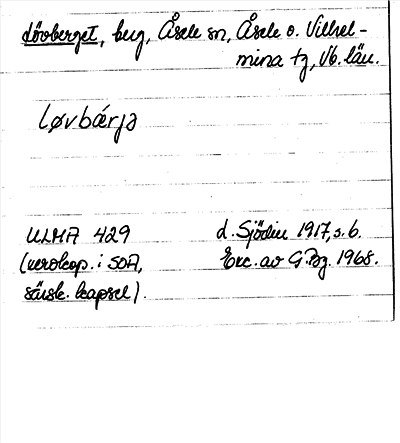 Lövberget, berg, Åsele sn, Åsele o. Vilhel-
mina tg, Vb. län.
løvbárjə
ULMA 429
(xerokop. i SOA,
särsk. kapsel).
d. Sjödin 1917, s. 6.
Exc. av G. Bg. 1968.